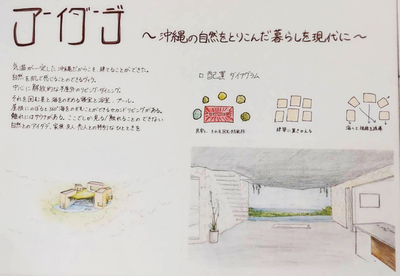 アイダーデ
〜沖縄の自然をとりこんだ暮らしを現代に〜
気温が一定した沖縄だからこそ、建てることができた。
自然を肌で感じることのできるヴィラ。
中心に解放的な半屋外のリビング・ダイニング。
それを囲む寝室と浴室、プール。
屋根にのぼると海を
離れにはサウナがある。ここでしか見る/触れることのできない
自然とのアイダデ、家族、友人、恋人との特別なひとときを
□ 配置ダイアグラム
建築に置きかえる
海へと視線を誘導